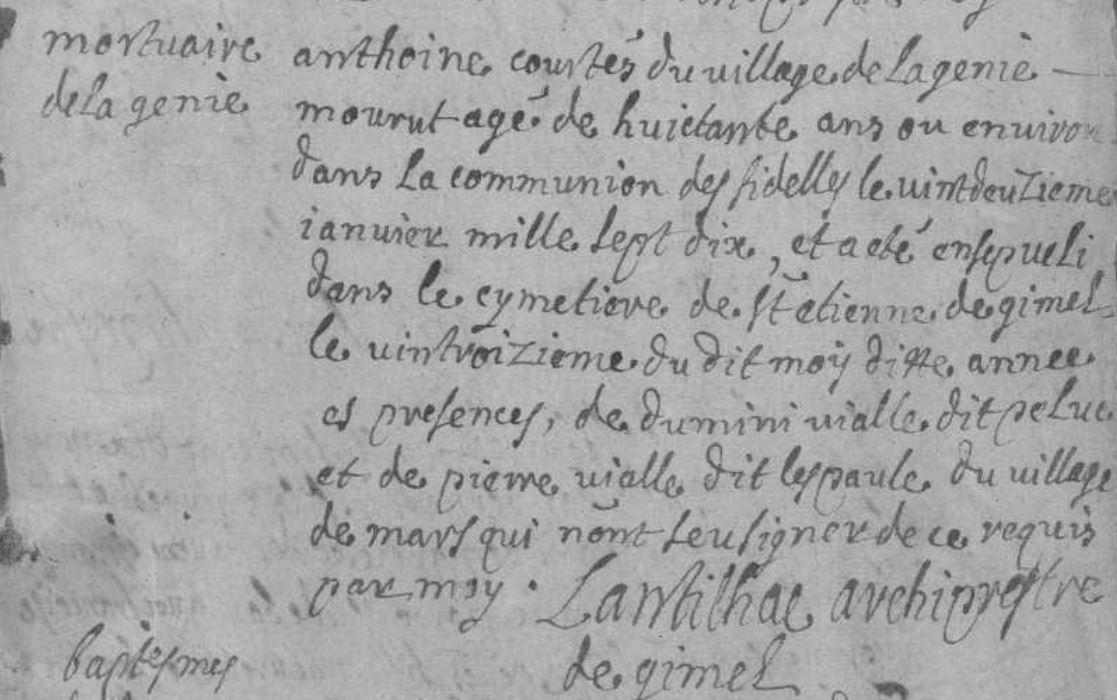 mortuaire
de la genie
anthoine courtés du village de la genie
mourut agé de huictante ans ou environ
dans la communion des fidelles le vintdeuzieme
ianvier mille sept dix, et a eté ensepveli
dans le cymetiere de st etienne de gimel
le vintroizieme du dit moy ditte annee
es presences, de dumini vialle dit peluc
et de pierre vialle dit lespaule du village
de mars qui nont seu signer de ce requis
par moy. Lantilhac archiprestre
de gimel
baptesmes